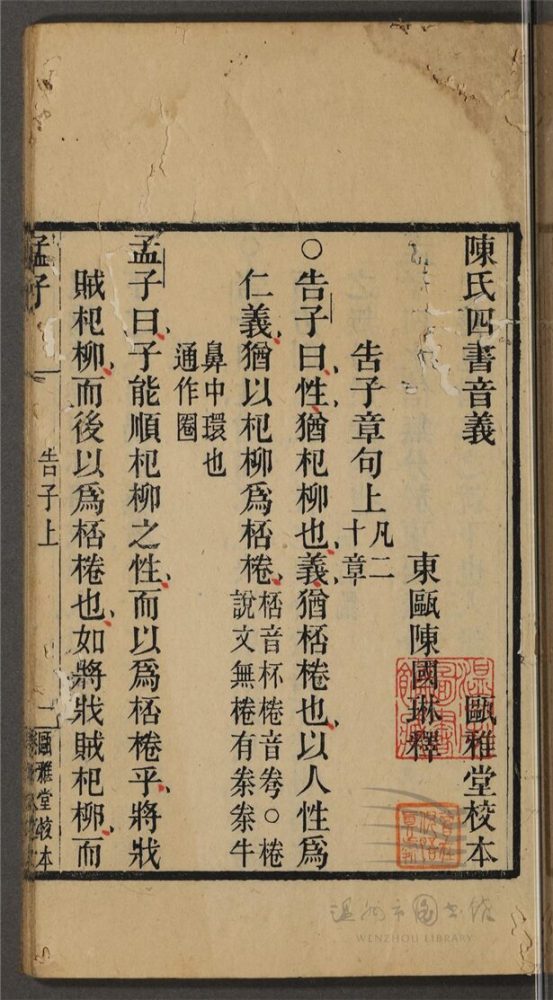 陳氏四書音義　甌雅堂校本
東甌陳國琳釋
告子章句上凡二十章
○告子曰性猶杞柳也義猶桮棬也以人性爲
仁義猶以杞柳爲桮棬桮音杯棬音弮○棬
說文無棬有桊桊牛
鼻中環也
通作圈
孟子曰子能順杞柳之性而以爲桮棬乎將戕
賊杞柳而後以爲桮棬也如將戕賊杞柳而
孟子　告子上　一　甌雅堂校本
溫州市圖書館
WENZHOU LIBRARY